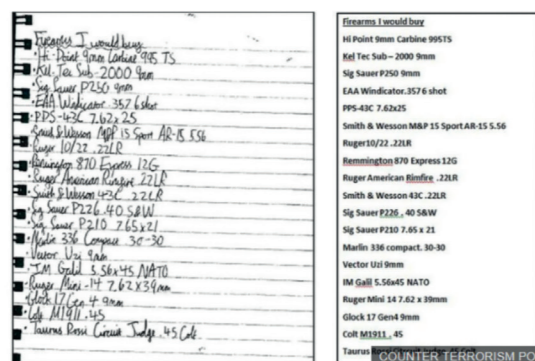 Firearms I would buy
· Hi-Point 9mm Carbine 995 TS
· Kel Tec Sub-2000 9mm
· Sig Sauer P250 9mm
· EAA Windicator .357 6 shot
· PPS-43C 7.62x25
· Smith & Wesson M&P 15 Sport AR-15 5.56
· Ruger 10/22 .22LR
· Remmington 870 Express 12G
· Ruger American Rimfire .22LR
· Smith & Wesson 43C .22LR
· Sig Sauer P226 .40 S&W
· Sig Sauer P210 7.65x21
· Marlin 336 Compact 30-30
· Vector Uzi 9mm
· IM Galil 5.56x45 NATO
· Ruger Mini-14 7.62x39mm
· Glock 17 Gen 4 9mm
· Colt M1911 .45
· Taurus Rossi Circuit Judge .45 Colt
Firearms I would buy
Hi Point 9mm Carbine 995TS
Kel Tec Sub – 2000 9mm
Sig Sauer P250 9mm
EAA Windicator.357 6 shot
PPS-43C 7.62x25
Smith & Wesson M&P 15 Sport AR-15 5.56
Ruger10/22 .22LR
Remmington 870 Express 12G
Ruger American Rimfire .22LR
Smith & Wesson 43C .22LR
Sig Sauer P226 . 40 S&W
Sig Sauer P210 7.65 x 21
Marlin 336 compact. 30-30
Vector Uzi 9mm
IM Galil 5.56x45 NATO
Ruger Mini 14 7.62 x 39mm
Glock 17 Gen4 9mm
Colt M1911 . 45
Taurus
COUNTER TERRORISM